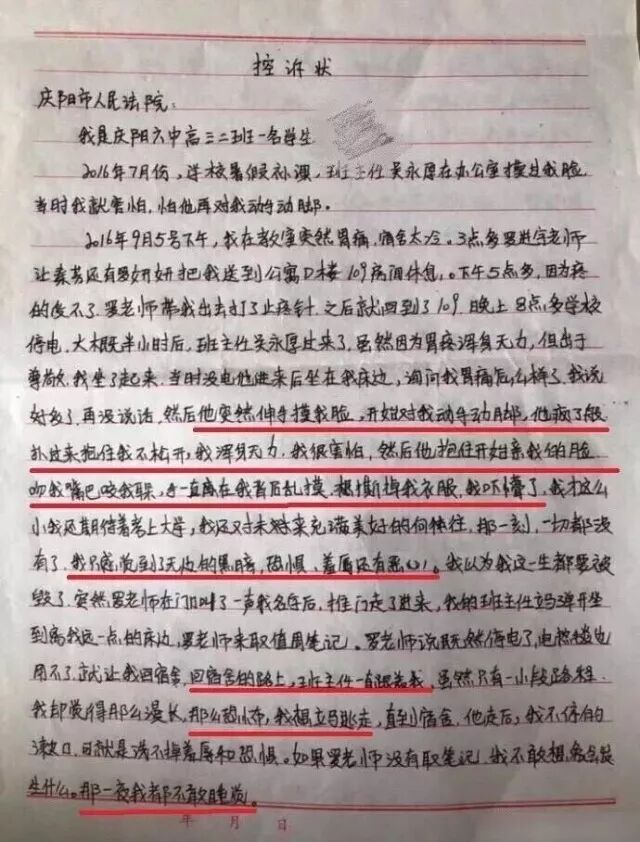 控诉状
庆阳市人民法院：
我是庆阳六中高三二班一名学生
2016年7月份，学校暑假补课，班主任吴永厚在办公室摸过我脸
当时我就害怕，怕他再对我动手动脚。
2016年9月5号下午，我在教室突然胃痛，宿舍太冷。3点多罗进宇老师
让秦芳还有罗妍妍把我送到公寓D楼109房间休息。下午5点多，因为疼
的受不了，罗老师带我出去打了止疼针，之后就回到了109，晚上8点多学校
停电，大概半小时后，班主任吴永厚过来了，虽然因为胃疼浑身无力，但出于
尊敬，我坐了起来，当时没电他进来后坐在我床边，询问我胃痛怎么样了，我说
好多了，再没说话，然后他突然伸手摸我脸，开始对我动手动脚，他疯了般
扑过来抱住我不松开，我浑身无力，我很害怕，然后他抱住开始亲我的脸
吻我嘴巴咬我耳朵，手一直在我背后乱摸，想撕掉我衣服，我吓懵了，我才这么
小我还期待着考上大学，我还对未来充满美好的向往，那一刻，一切都没
有了，我只感觉到了无边的黑暗，恐惧、羞辱还有恶心！我以为我这一生都要被
毁了，突然罗老师在门口叫了一声我名字后，推门走了进来，我的班主任立马弹开坐
到离我远一点的床边，罗老师来取值周笔记。罗老师说既然停电了，电热毯也
用不了，就让我回宿舍，回宿舍的路上，班主任一直跟着我，虽然只有一小段路程，
我却觉得那么漫长，那么恐怖，我想立马逃走，直到宿舍，他走后，我不停的
漱口，可就是洗不掉羞辱和恐惧。如果罗老师没有取笔记，我不敢想象会发
生什么。那一夜我都不敢睡觉。
年 月 日